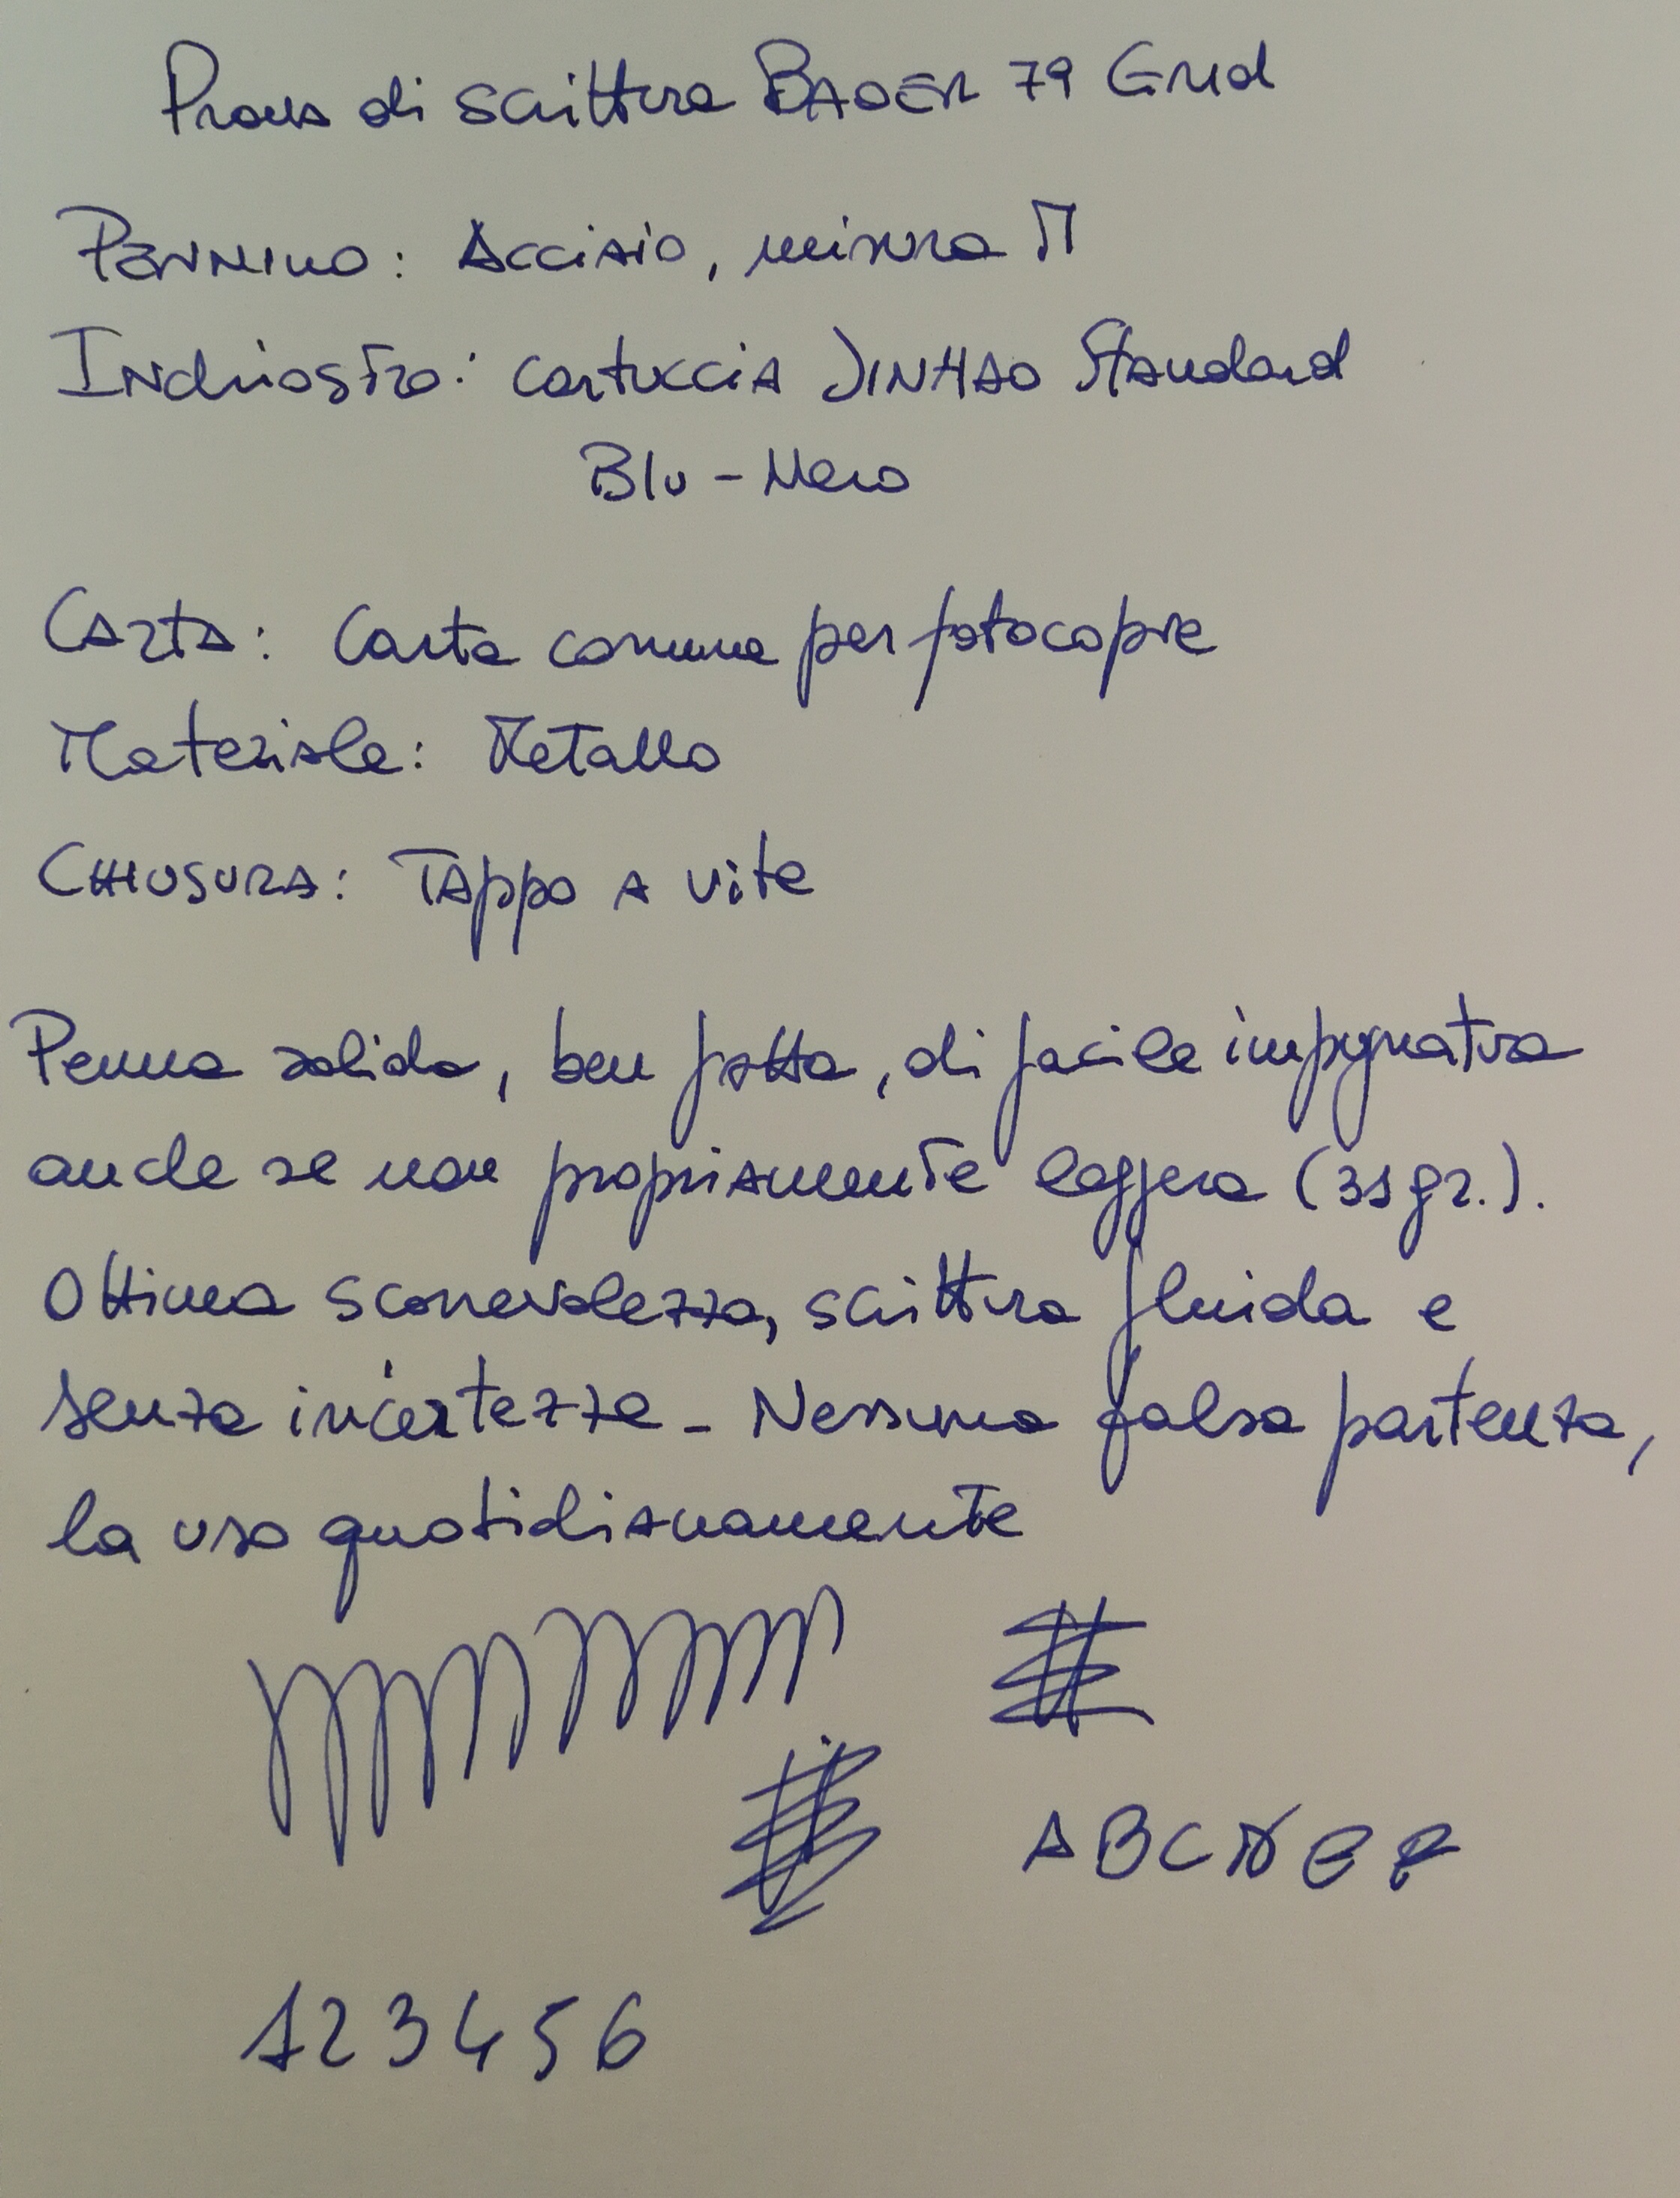 Prova di scrittura BAOER 79 Grid
PENNINO: Acciaio, misura M
Inchiostro: cartuccia JINHAO Standard
Blu-Nero
CARTA: Carta comune per fotocopie
Materiale: Metallo
CHIUSURA: TAppo A vite
Penna solida, ben fatta, di facile impugnatura
anche se non propriamente leggera (31gr.).
Ottima scorrevolezza, scrittura fluida e
senza incertezze - Nessuna falsa partenza,
la uso quotidianamente
A B C D E F
1 2 3 4 5 6